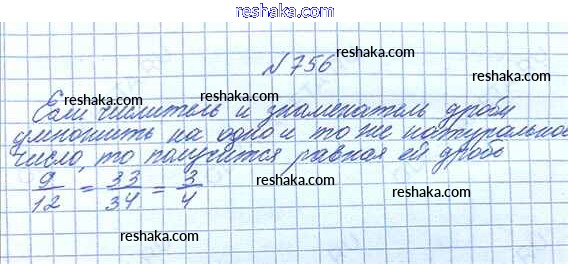 reshaka.com
№ 756 reshaka.com
reshaka.com reshaka.com
Если числитель и знаменатель дроби
умножить на одно и то же натуральное
число, то получится равная ей дробь
9/12 = 33/34 = 3/4
reshaka.com reshaka.com
reshaka.com reshaka.com